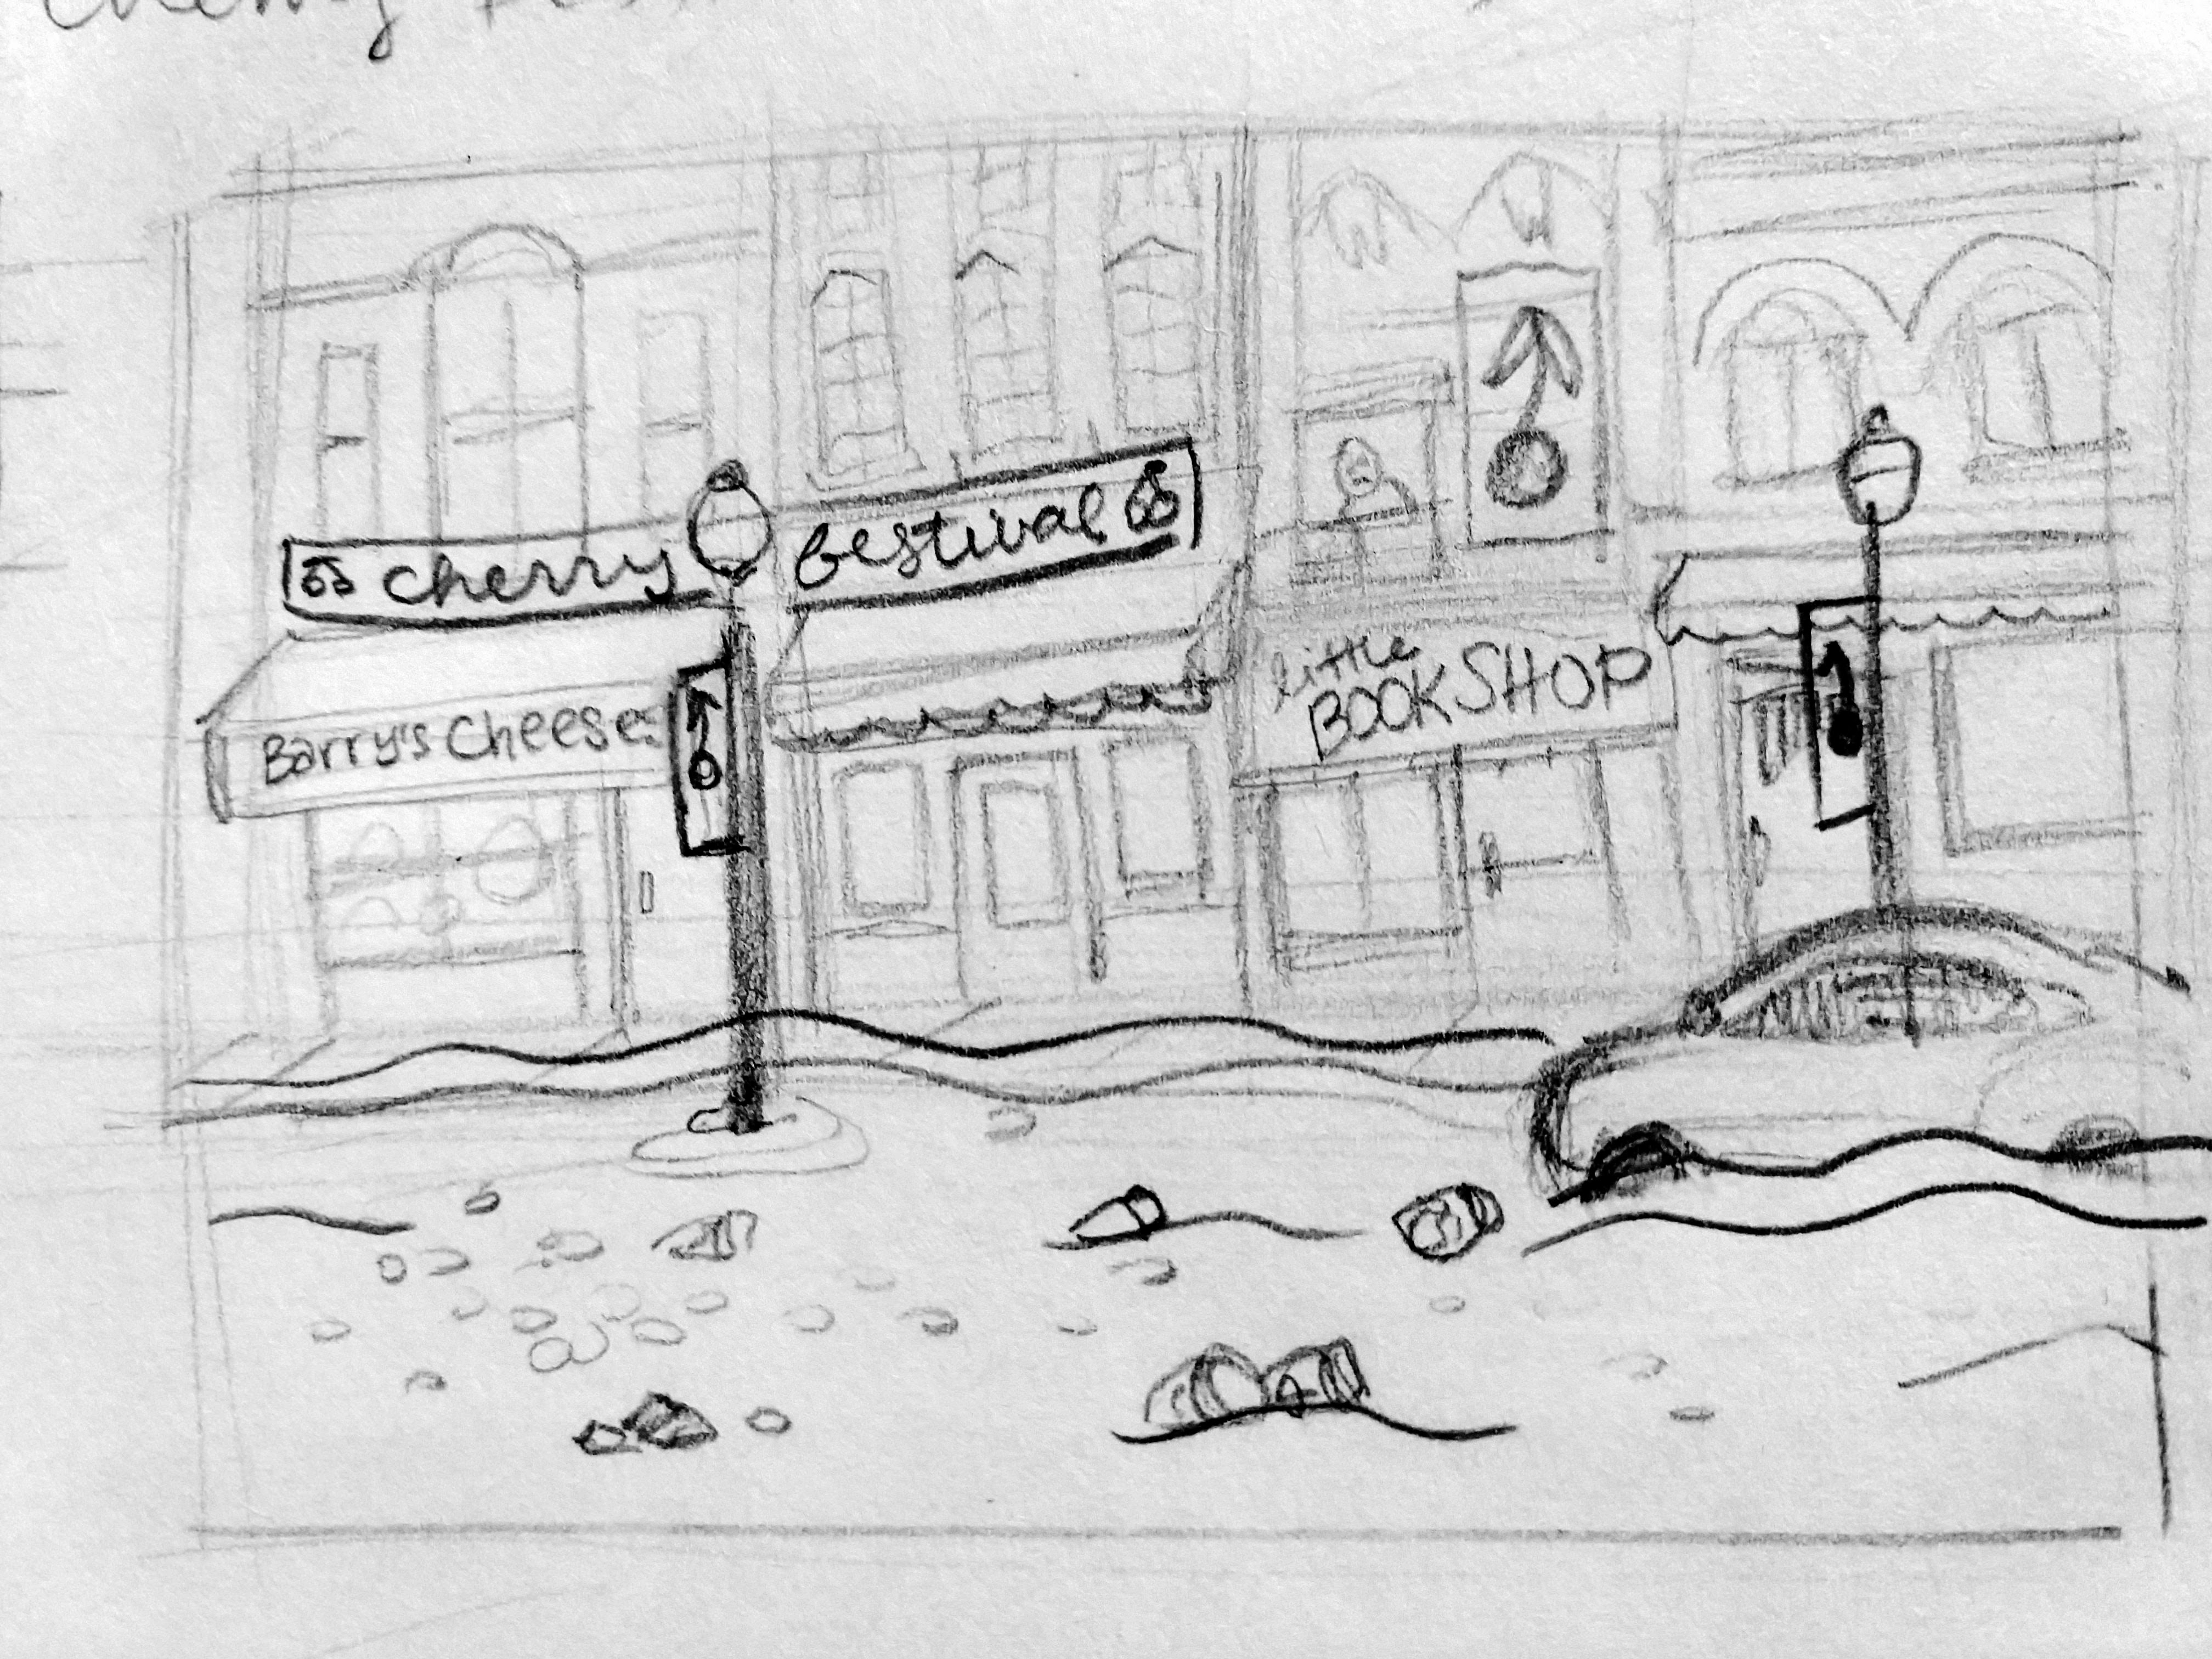 cherry festival
Barry's Cheese
little
BOOKSHOP